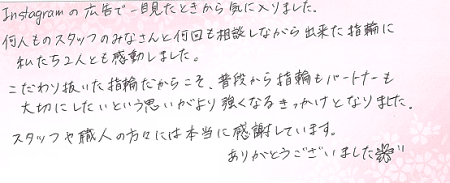 Instagramの広告で一目見たときから気に入りました。
何人ものスタッフのみなさんと何回も相談しながら出来た指輪に
私たち2人とも感動しました。
こだわり抜いた指輪だからこそ、普段から指輪もパートナーも
大切にしたいという思いがより強くなるきっかけとなりました。
スタッフや職人の方々には本当に感謝しています。
ありがとうございました